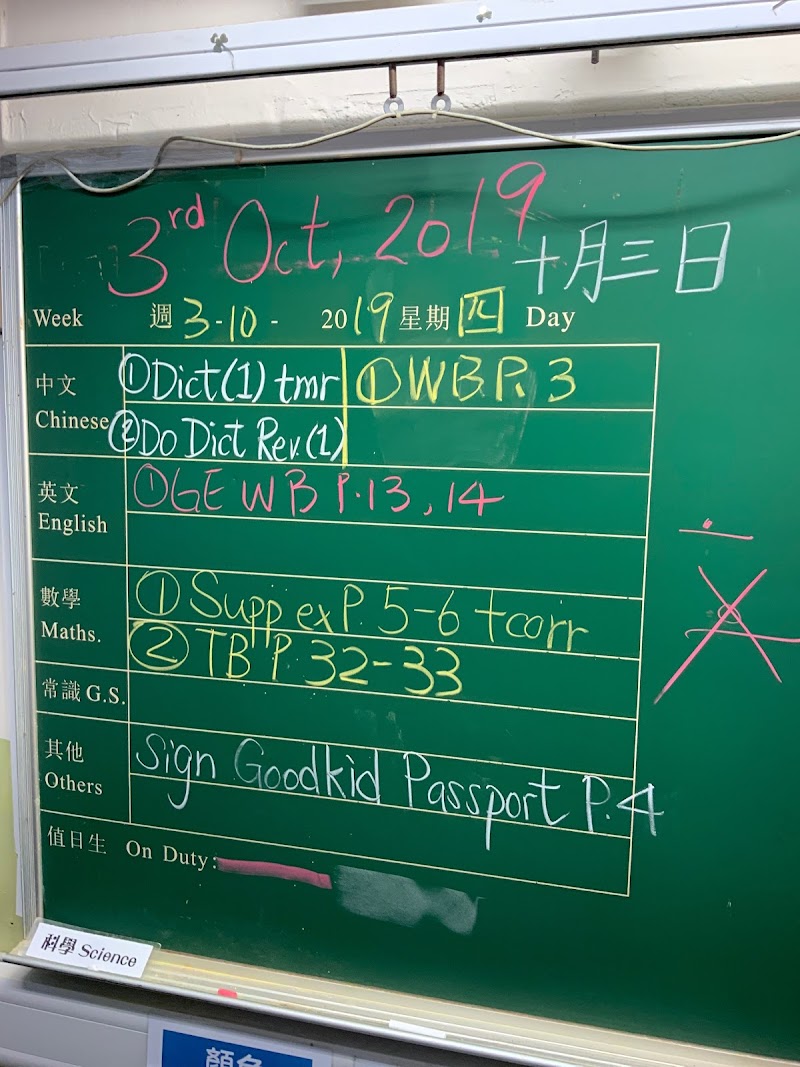 3rd Oct, 2019
十月三日
Week 週 3-10- 2019 星期 四 Day
中文 Chinese
①Dict(1) tmr ①WB P. 3
②Do Dict Rev.(1)
英文 English
①GE WB P.13, 14
數學 Maths.
①Supp ex P. 5-6 +corr
②TB P. 32-33
常識 G.S.
其他 Others
Sign Goodkid Passport P.4
值日生 On Duty:
科學 Science
顏色